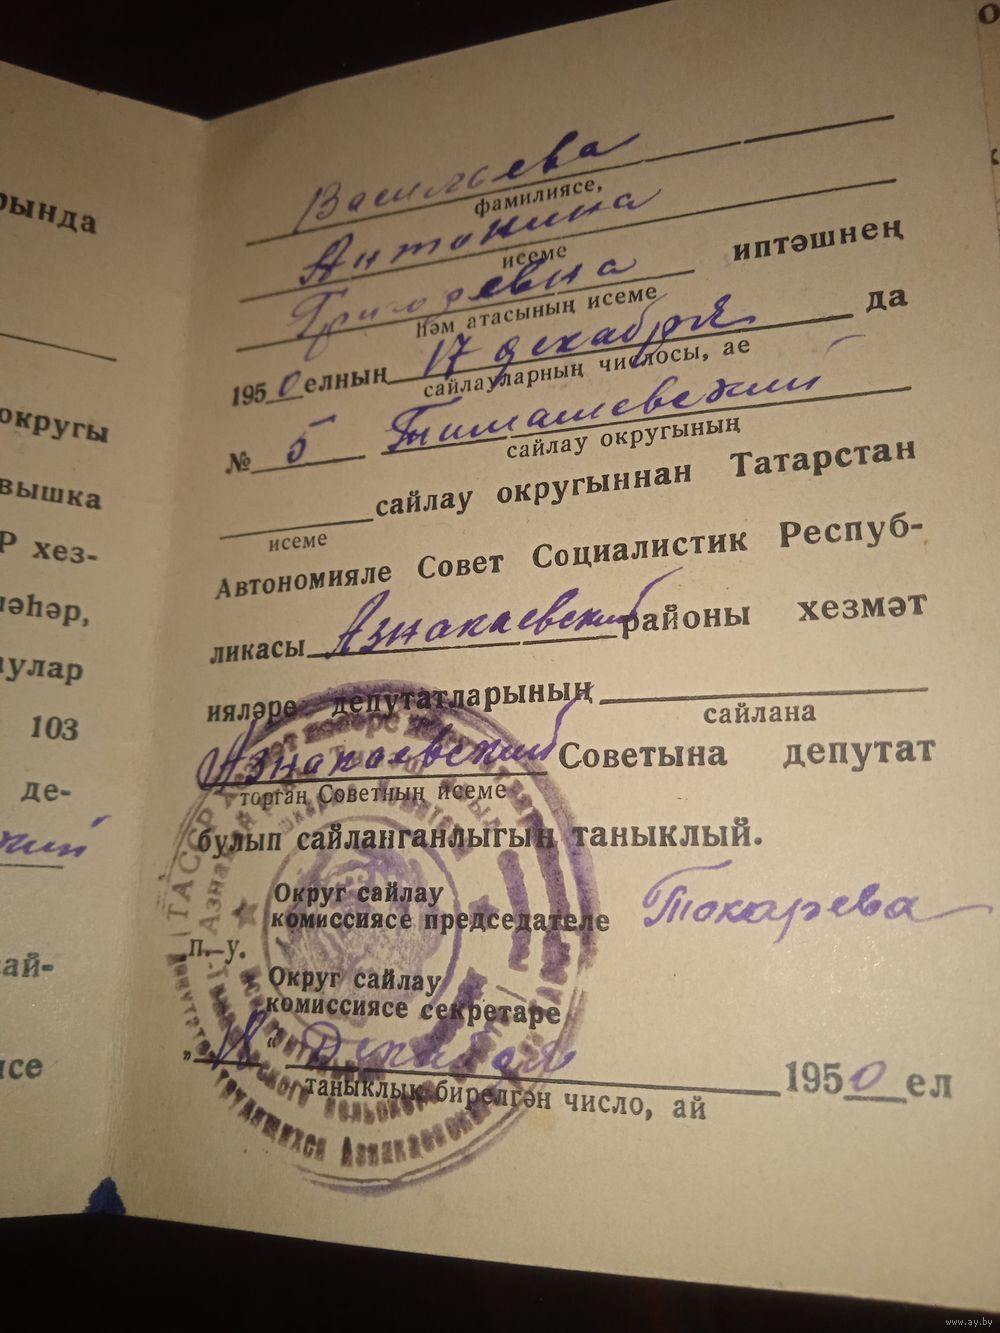 рында
округы
вышка
Р хез-
ләһәр,
аулар
103
де-
сай-
исе
Васильева
фамилиясе,
Антонина
исеме
Григорьевна иптәшнең
һәм атасының исеме
1950 елның 17 декабря да
сайлауларның числосы, ае
№ 5 Тимашевский
сайлау округының
сайлау округыннан Татарстан
исеме
Автономияле Совет Социалистик Респуб-
ликасы Азнакаевский районы хезмәт
ияләре депутатларының
сайлана
Азнакаевский Советына депутат
торган Советның исеме
булып сайланганлыгын таныклый.
Округ сайлау
комиссиясе председателе Токарева
п. у.
Округ сайлау
комиссиясе секретаре
„18“ Декабря 1950 ел
таныклык бирелгән число, ай
ТАССР
трудящихся Азнакаевского
www.ay.by